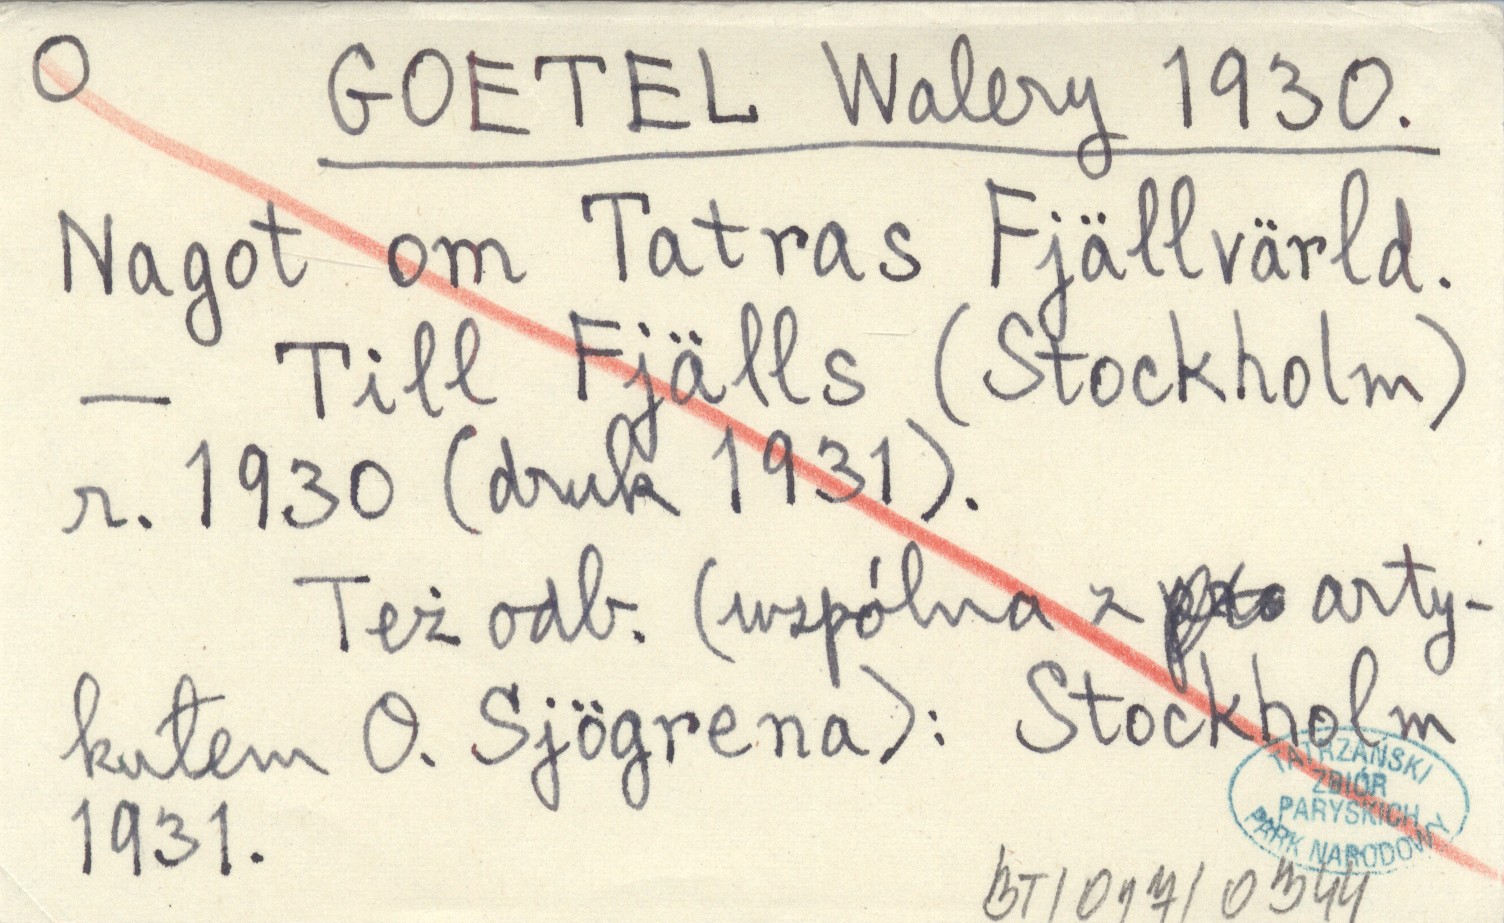 O GOETEL Walery 1930.
Nagot om Tatras Fjällvärld.
— Till Fjälls (Stockholm)
r. 1930 (druk 1931).
Też odb. (wspólna z arty-
kułem O. Sjögrena): Stockholm
1931.
TATRZAŃSKI
ZBIÓR
PARYSKICH
PARK NARODOWY
BT/017/0344